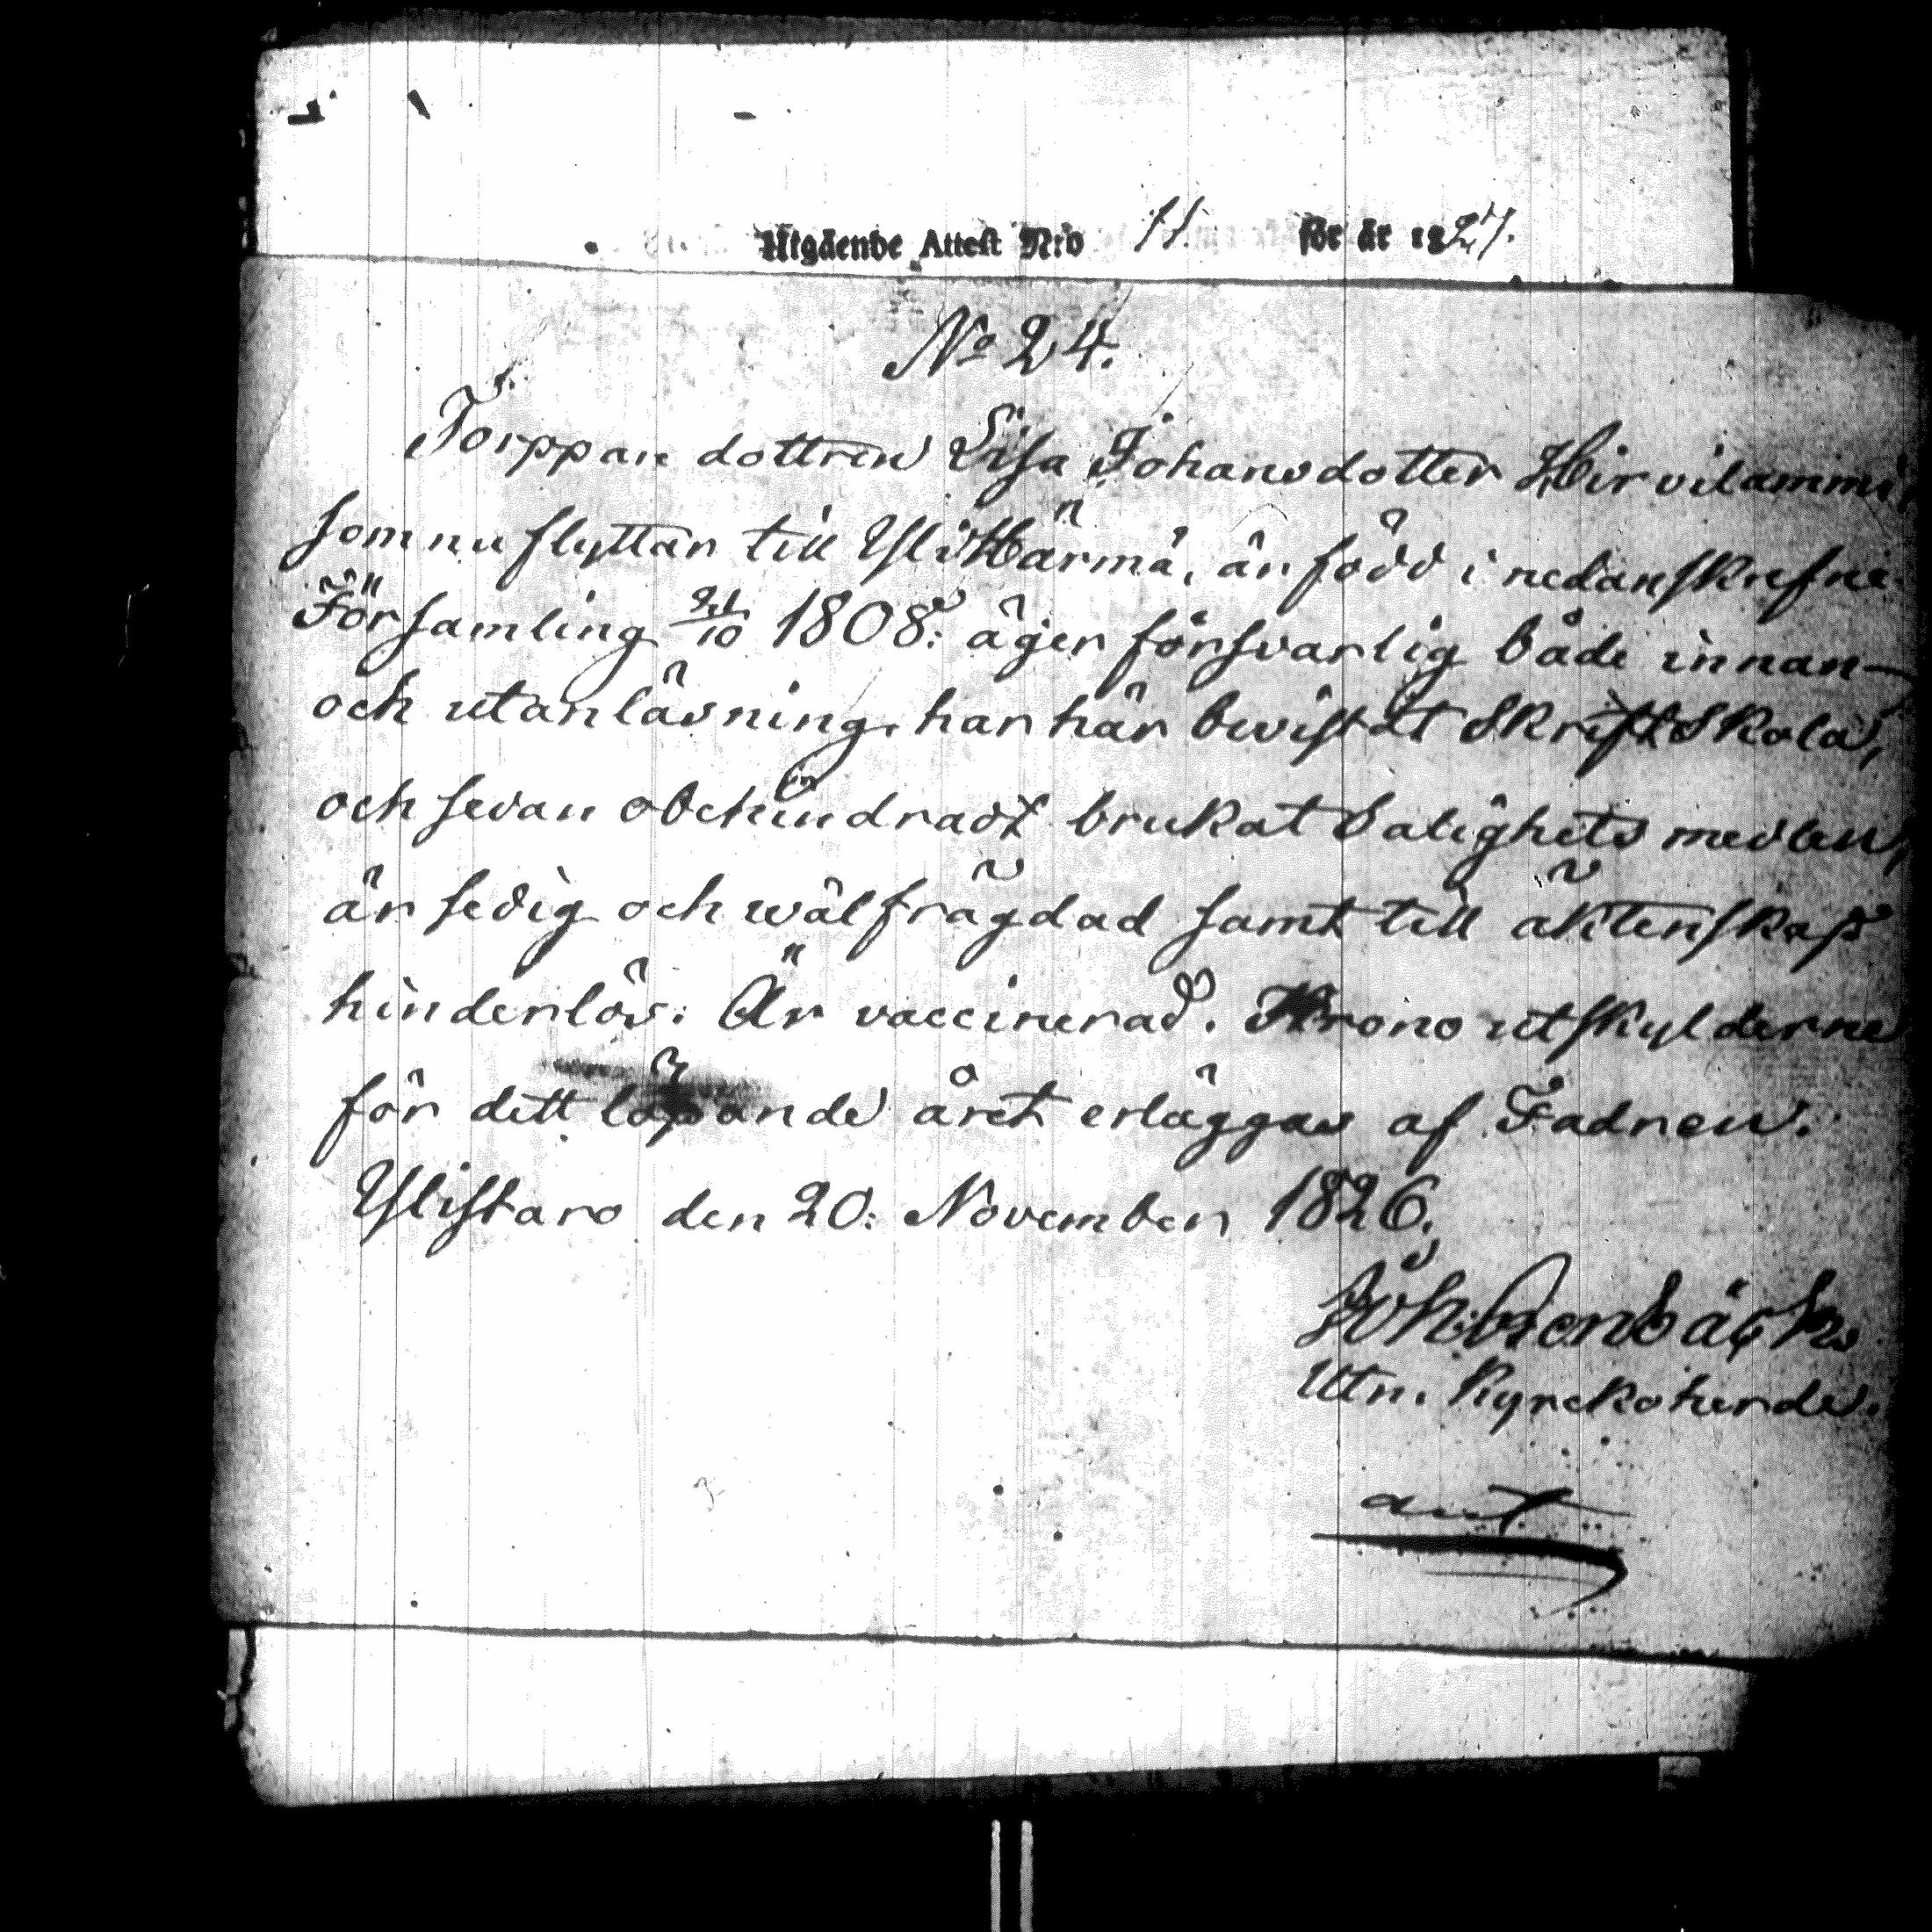 Utgående Attest N:o 11. för år 1827.
No 24.
Torppare dottren Lisa Johansdotter Hirvilammi
som nu flyttar till Ylihärmä, är född i nedanskrefne
Församling 21/10 1808: äger försvarlig både innan-
och utanläsning, har här bevistat Skriftskola,
och sedan obehindradt brukat Salighets medlen,
är sedig och wälfrägdad samt till äktenskap
hinderlös: Är vaccinerad. Krono utskylderne
för dett löpande året erläggas af Fadren.
Ylistaro den 20: November 1826.
Utn. Kyrckoherde.